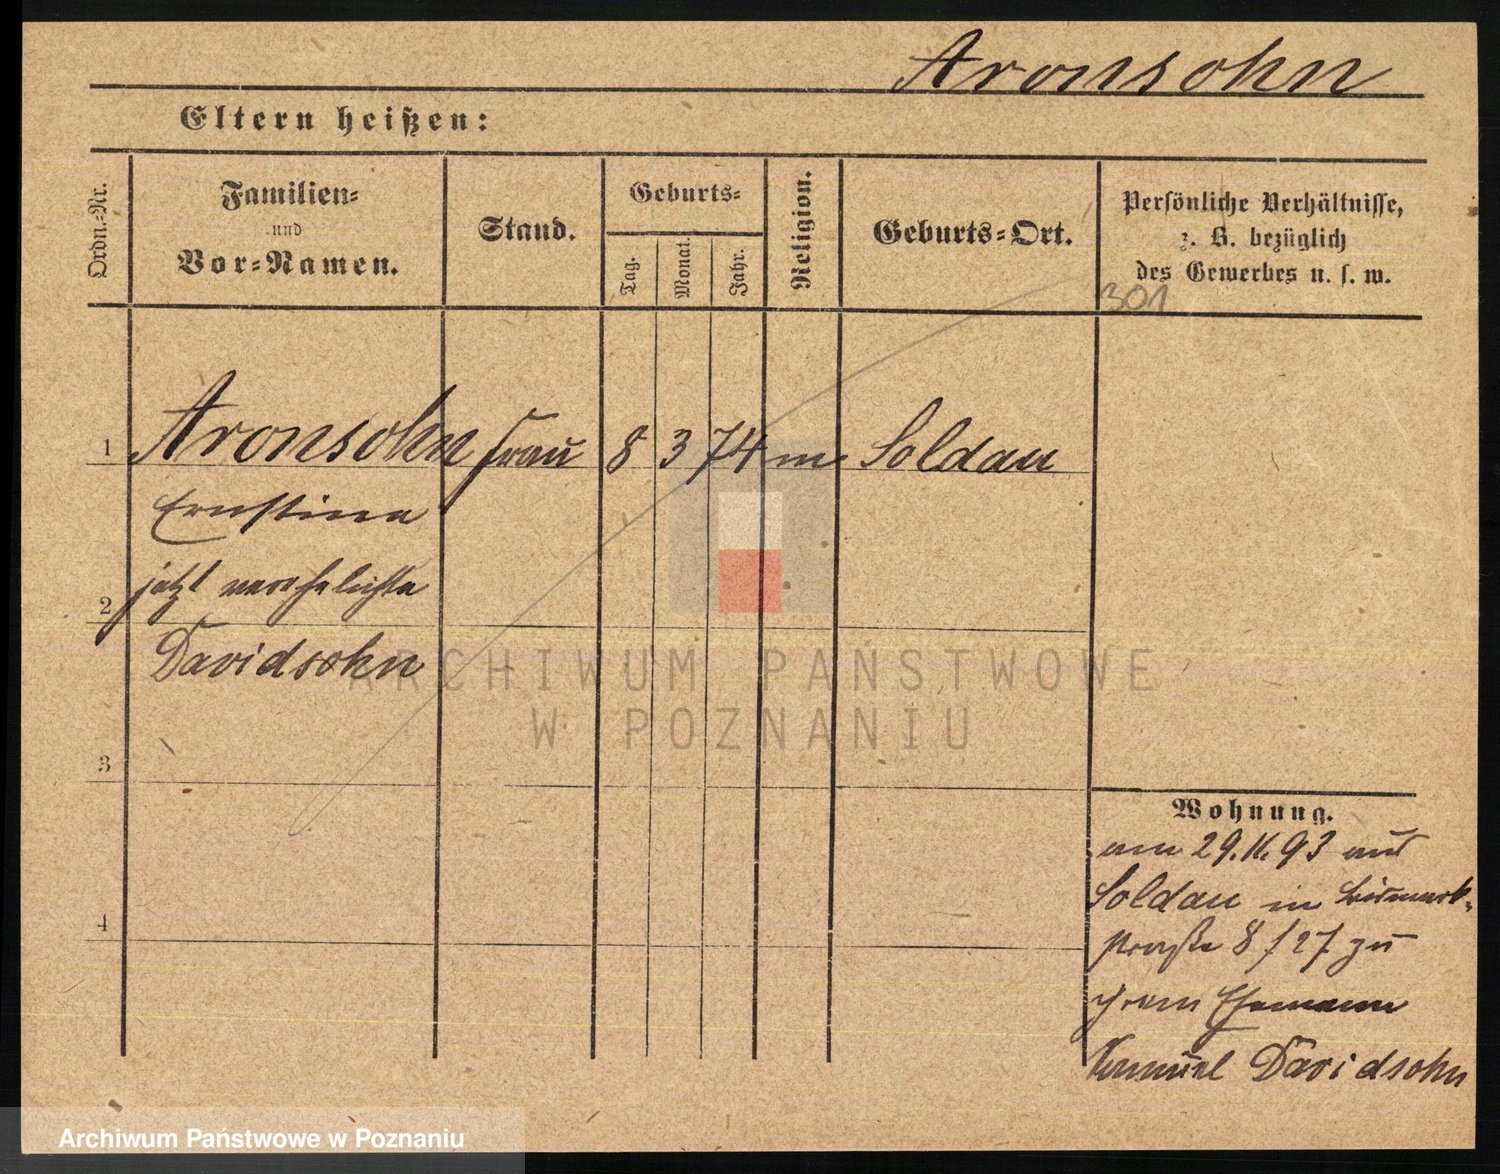 Aronsohn
Eltern heißen:
Ordn.-Nr.
Familien-
und
Vor-Namen.
Stand.
Geburts-
Tag.
Monat.
Jahr.
Religion.
Geburts-Ort.
Persönliche Verhältnisse,
z. B. bezüglich
des Gewerbes u. s. w.
301
1 Aronsohn Frau 8 3 74 m Soldau
Ernstine
jetzt verehelichte
2
Davidsohn
ARCHIWUM PAŃSTWOWE
W POZNANIU
3
4
Wohnung.
am 29.11.93 aus
Soldau in Bismark-
straße 8/27 zu
ihrem Ehemann
Samuel Davidsohn
Archiwum Państwowe w Poznaniu